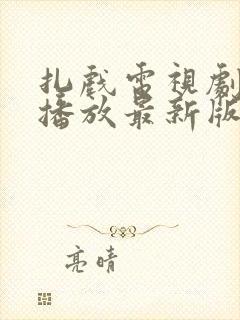 扎戲電視劇
播放最新版
亮晴